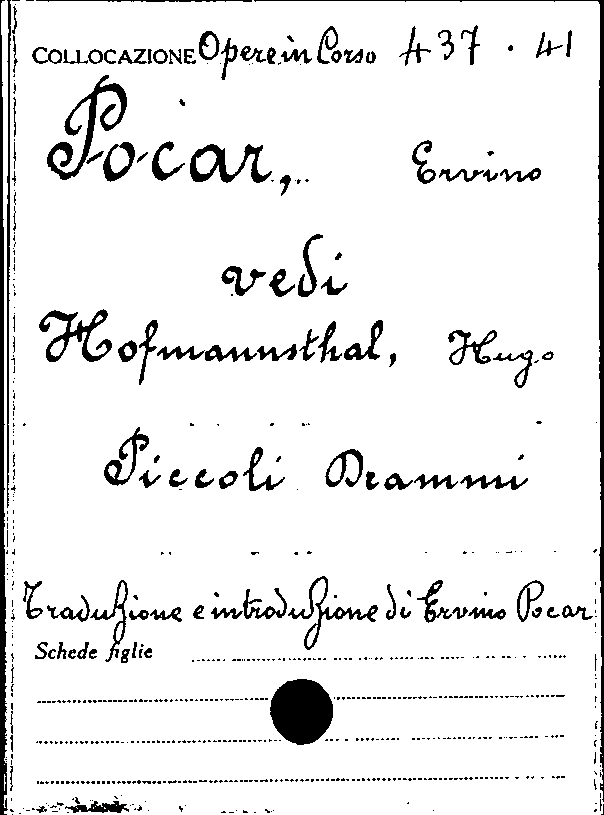 COLLOCAZIONE Opere in Corso 437 . 41
Pocar, Ervino
vedi
Hofmannsthal, Hugo
Piccoli Drammi
Traduzione e introduzione di Ervino Pocar
Schede figlie